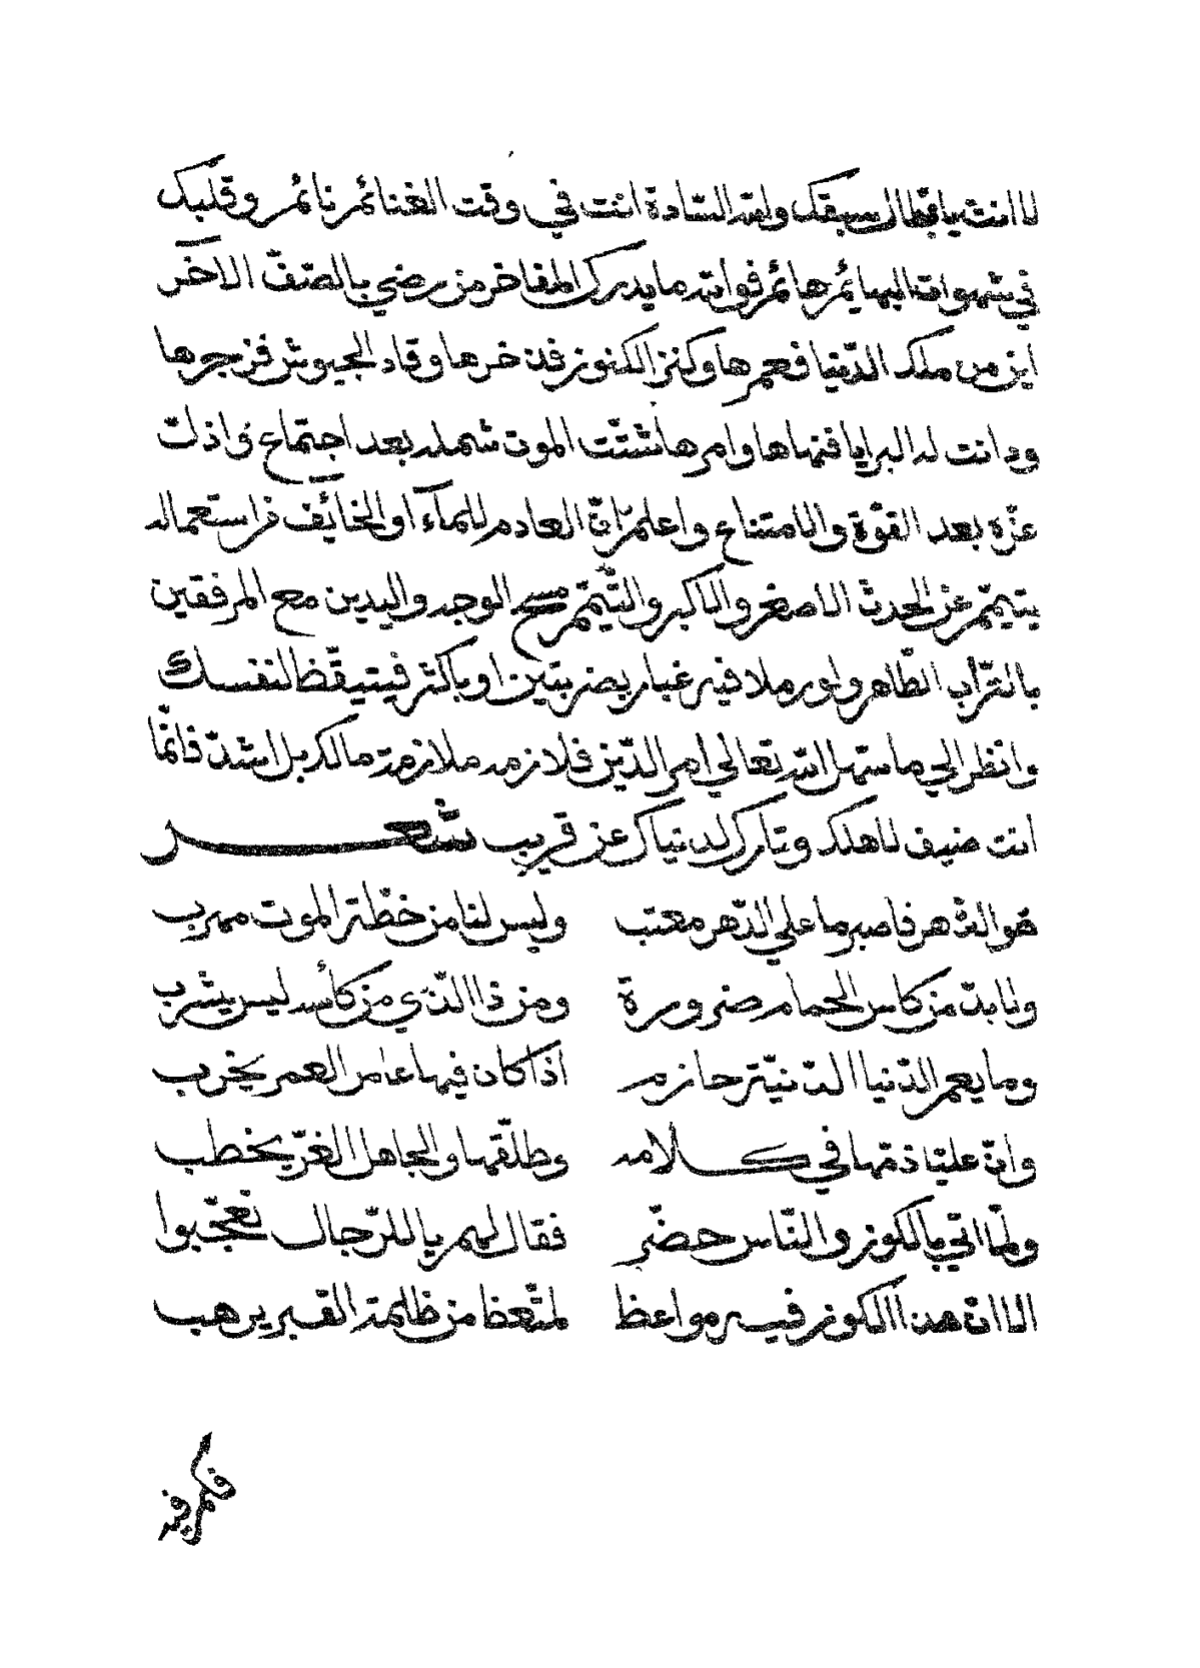 لا انت يا بطال سبقك ولقد السادة انت في وقت الغنائم نائم وقلبك
في شهوات البهائم هائم فوالله ما يدرك المفاخر من رضي بالصّفّ الآخر
اين من ملك الدّنيا فعمرها وكنز الكنوز فدخرها وقاد الجيوش فزجرها
ودانت له البرايا فنهاها وامرها شتّت الموت شمله بعد اجتماع واذلّ
عزّه بعد القوّة والامتناع واعلم انّ العادم للمآء او الخائف من استعماله
يتيمّم عن الحدث الاصغر والاكبر والتّيمّم مسح الوجه واليدين مع المرفقين
بالتّراب الطّاهر ولو رملا فيه غبار بضربتين او باكثر فتيقّظ لنفسك
وانظر الي ما سهل الله تعالي امر الدّين فلازمه ملازمة مالك بل اشدّ فانّما
انت ضيف لاهلك وتارك لدنياك عن قريب شعر
هو الدّهر فاصبر ما علي الدّهر معتب وليس لنا من خطّة الموت مهرب
ولا بدّ من كاس الحمام ضرورة ومن ذا الّذي من كأسه ليس يشرب
وما يعمر الدّنيا الدّنيّة حازم اذا كان فيها عامر العمر يخرب
وانّ عليّا ذمّها في كلامه وطلّقها والجاهل الغرّ يخطب
ولمّا اتي بالكوز والنّاس حضّر فقال لهم يا للرّجال تعجّبوا
الا انّ هذا الكوز فيه مواعظ لمتّعظ من ظلمة القبر يرهب
فكم فيه